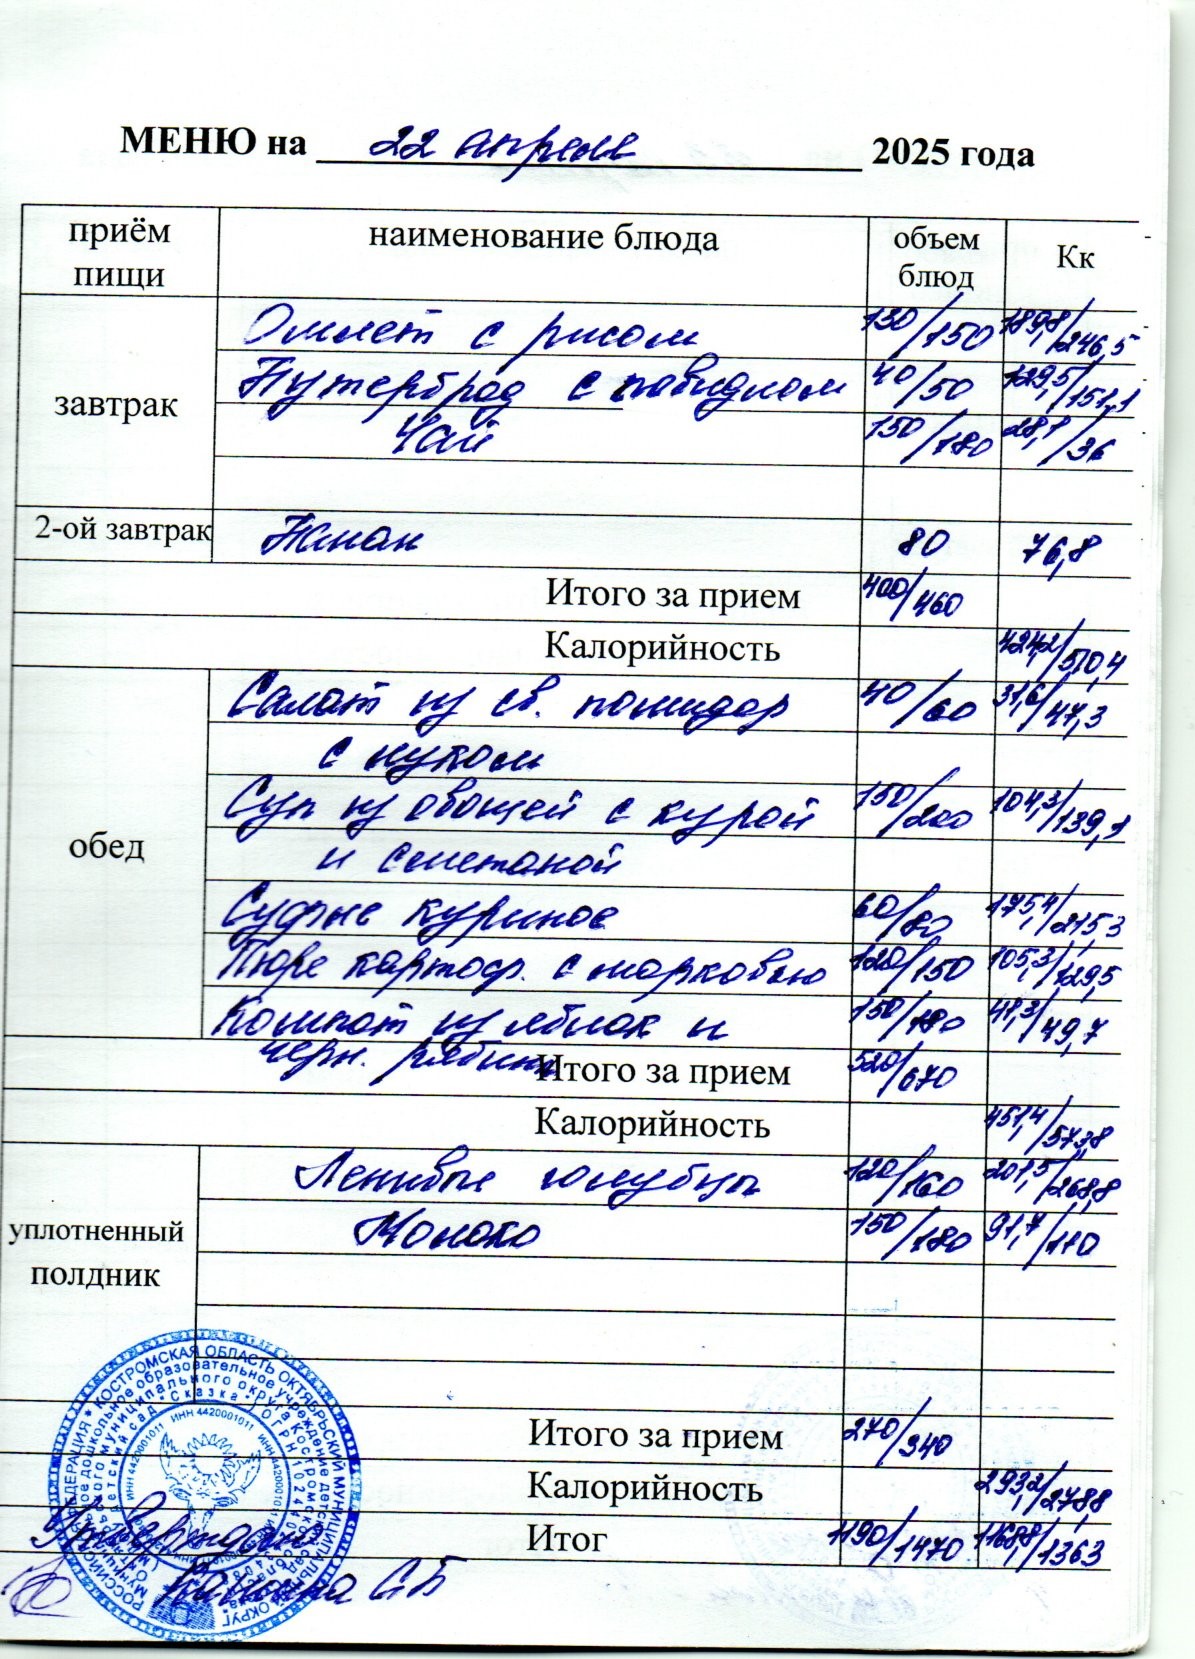 МЕНЮ на 22 апреля 2025 года
приём пищи наименование блюда объем блюд Кк
завтрак
Омлет с рисом 130/150 189,8/246,5
Бутерброд с повидлом 40/50 129,5/151,1
Чай 150/180 28,1/36
2-ой завтрак Банан 80 76,8
Итого за прием 400/460
Калорийность 424,2/510,4
обед
Салат из св. помидор 40/60 31,6/47,3
с луком
Суп из овощей с курой 150/200 104,3/139,1
и сметаной
Суфле куриное 60/80 175,4/215,3
Пюре картоф. с морковью 120/150 105,3/129,5
Компот из яблок и 150/180 41,3/49,7
черн. рябины
Итого за прием 520/670
Калорийность 451,4/573,8
уплотненный полдник
Ленивые голубцы 120/160 201,5/268,8
Молоко 150/180 91,7/110
Итого за прием 270/340
Калорийность 293,2/278,8
Итог 1190/1470 1168,8/1363
РОССИЙСКАЯ ФЕДЕРАЦИЯ * КОСТРОМСКАЯ ОБЛАСТЬ ОКТЯБРЬСКИЙ МУНИЦИПАЛЬНЫЙ ОКРУГ
дошкольное образовательное учреждение
муниципального округа Костромской
детский сад "Сказка"
ИНН 4420001011 ИНН 4420001011
Утверждаю
С.Б